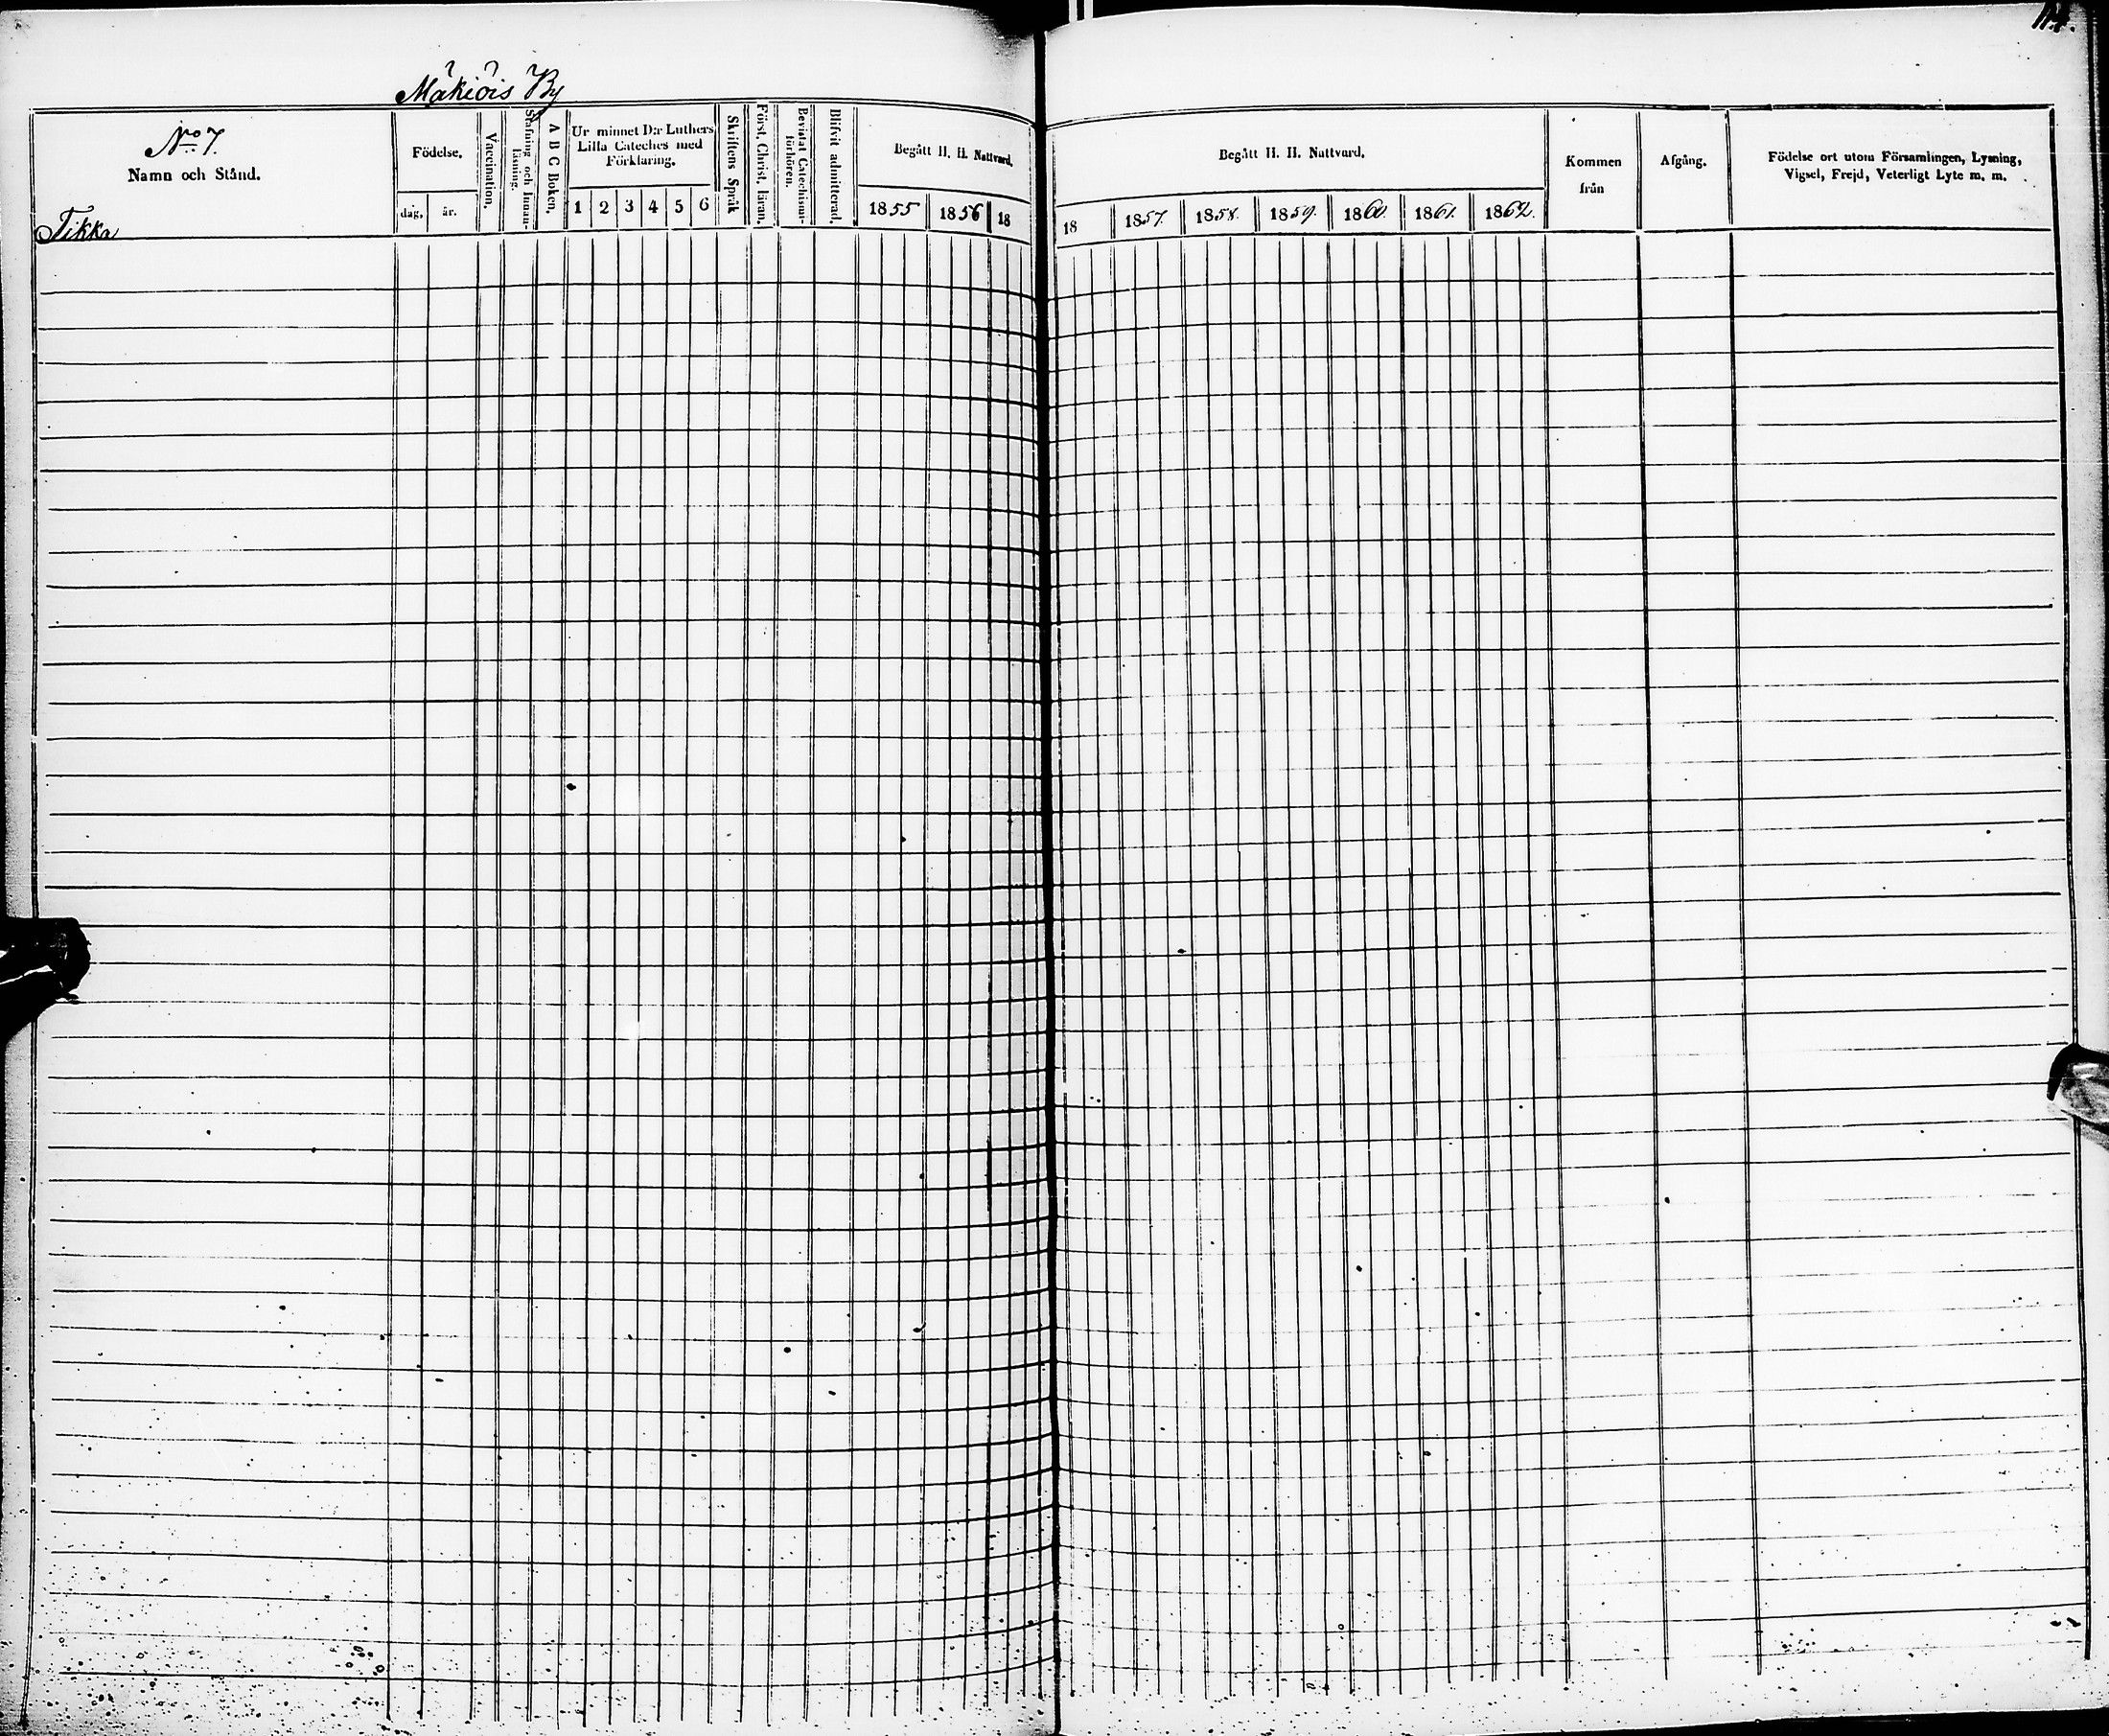 Mäkiöis By
No 7.
Namn och Stånd.
Födelse.
dag, år.
Vaccination.
Stafning och Innan-
läsning.
A B C Boken,
Ur minnet D:r Luthers
Lilla Cateches med
Förklaring.
1 2 3 4 5 6
Skriftens Språk
Först. Christ. läran,
Bevistat Catechismi-
förhören.
Blifvit admitterad,
Begått H. H. Nattvard.
1855 1856 18
Tikka
Begått H. H. Nattvard.
18 1857. 1858. 1859. 1860. 1861. 1862.
Kommen
från
Afgång.
Födelse ort utom Församlingen, Lysning,
Vigsel, Frejd, Veterligt Lyte m. m.